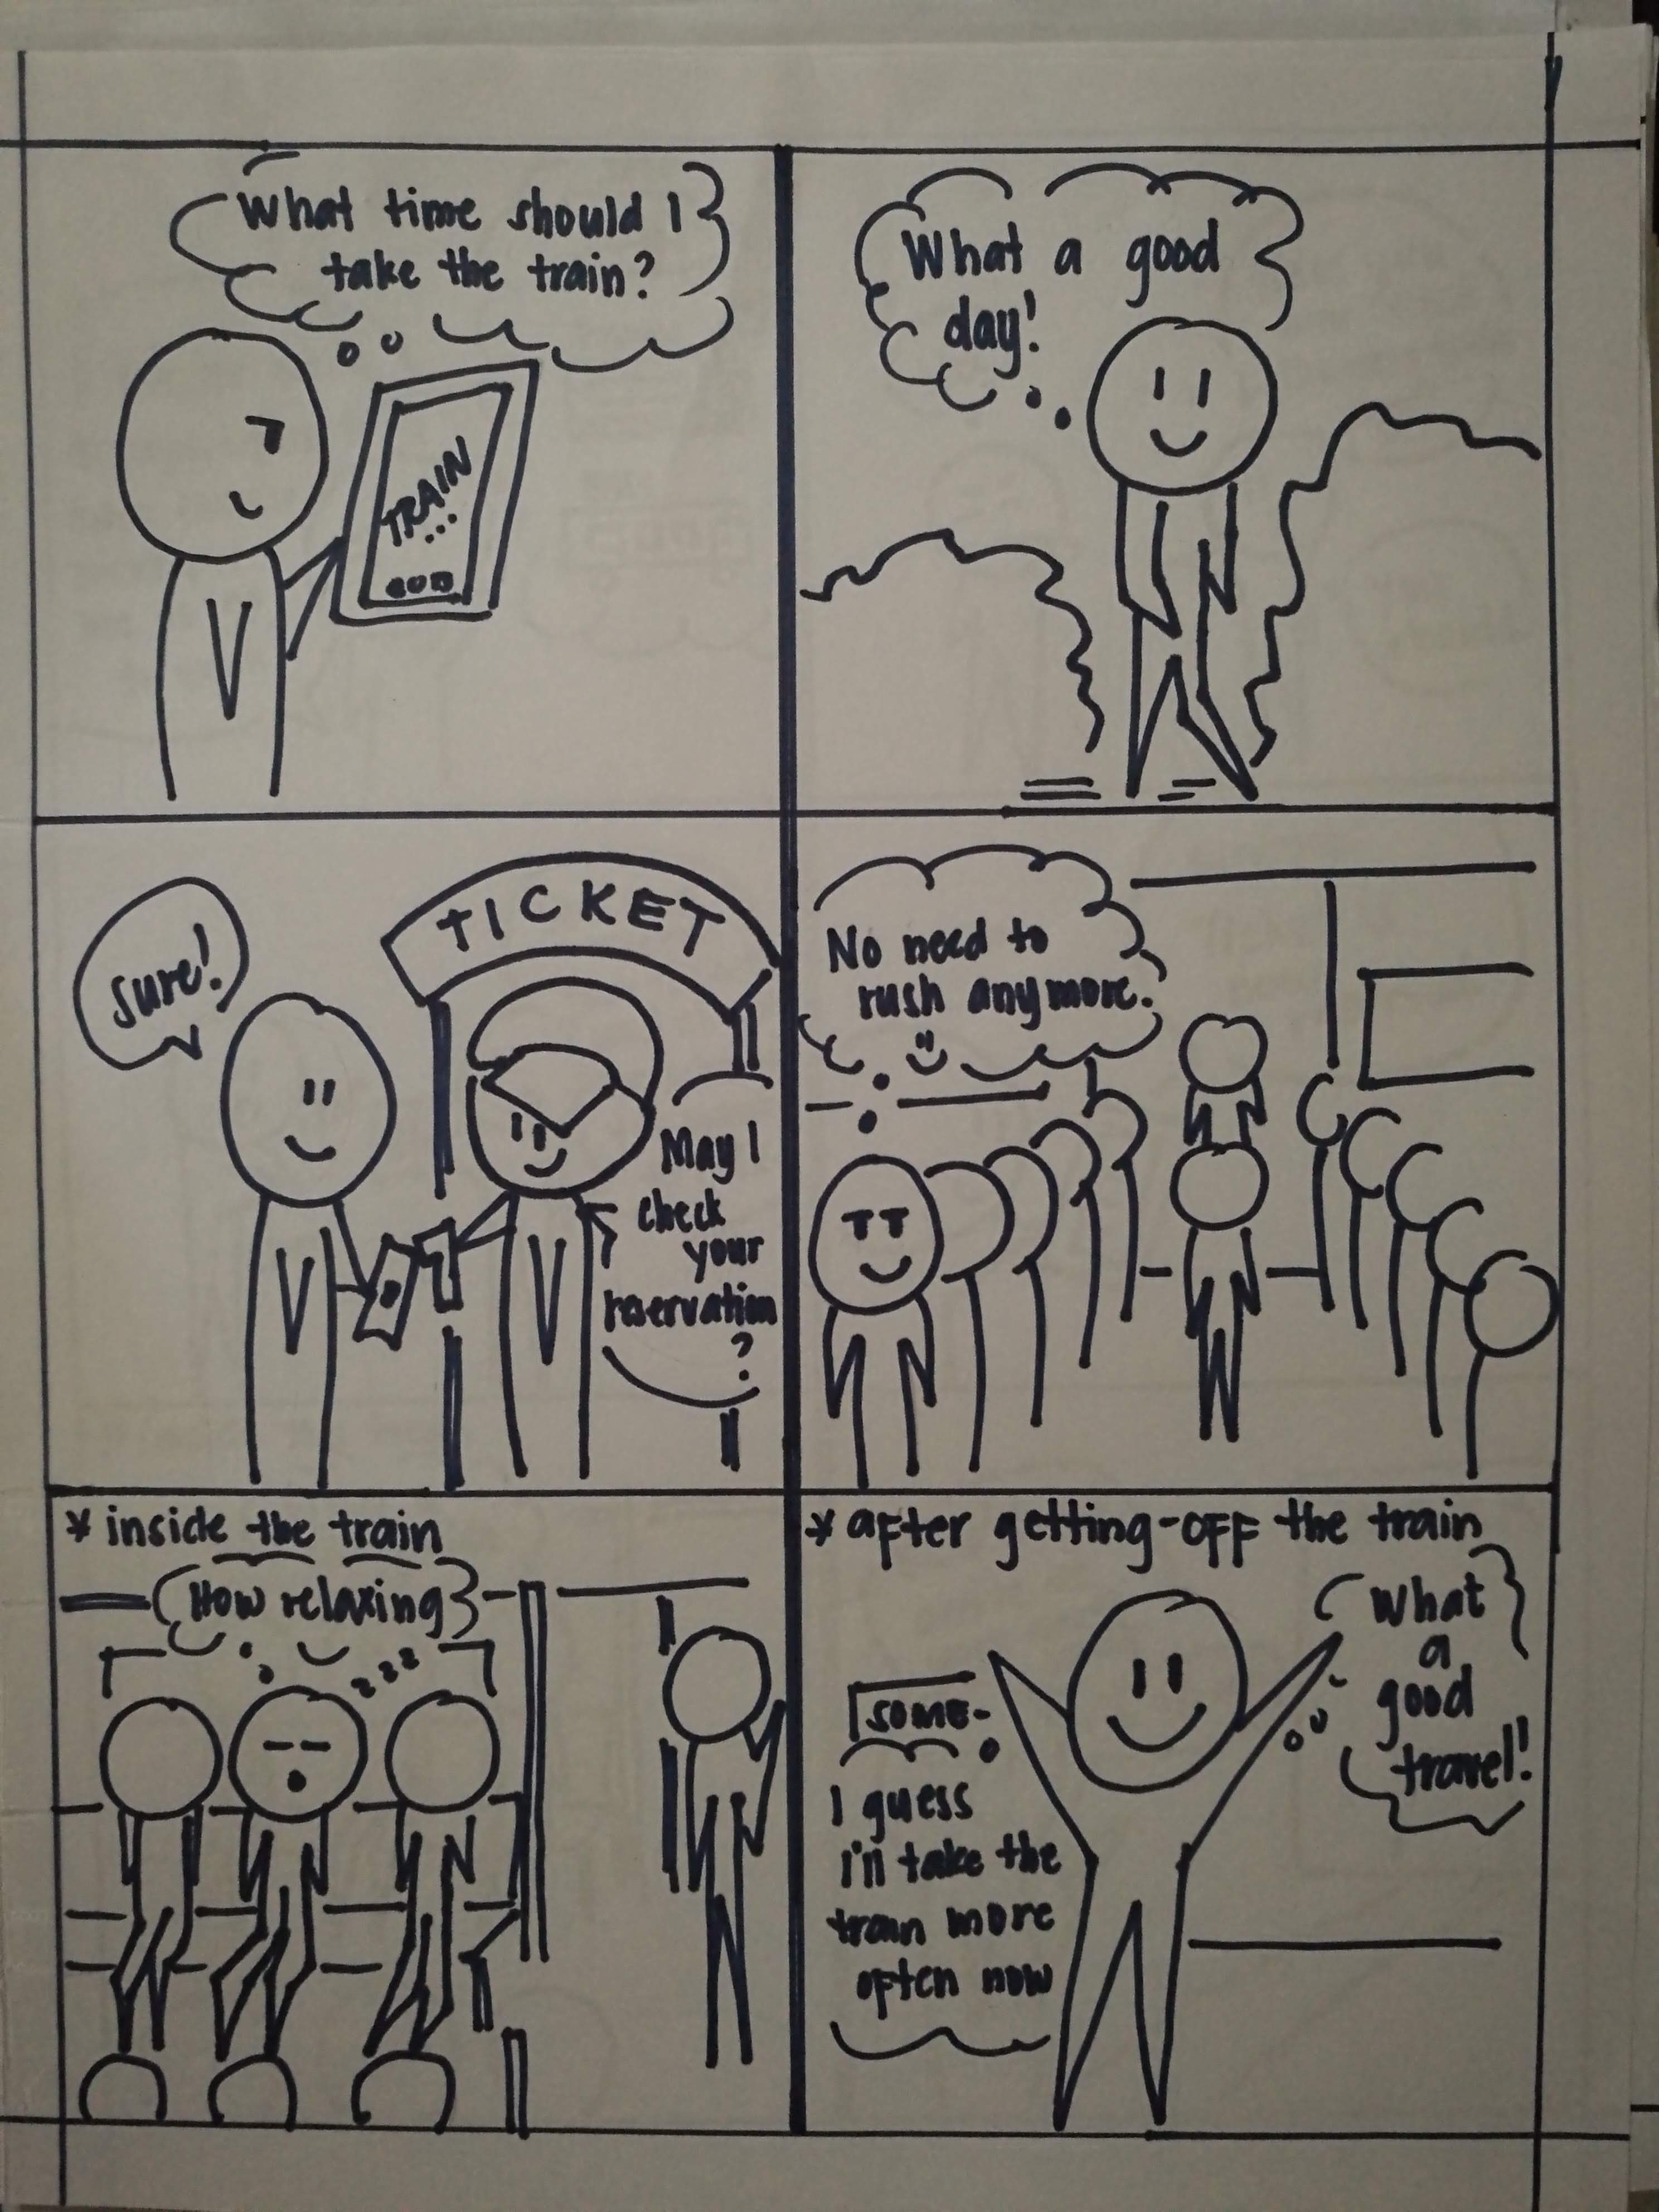 What time should I
take the train?
TRAIN
...
What a good
day!
Sure!
TICKET
May I
check
your
reservation
?
No need to
rush anymore.
* inside the train
How relaxing
zzz
* after getting-off the train
What
a
good
travel!
some-
I guess
I'll take the
train more
often now